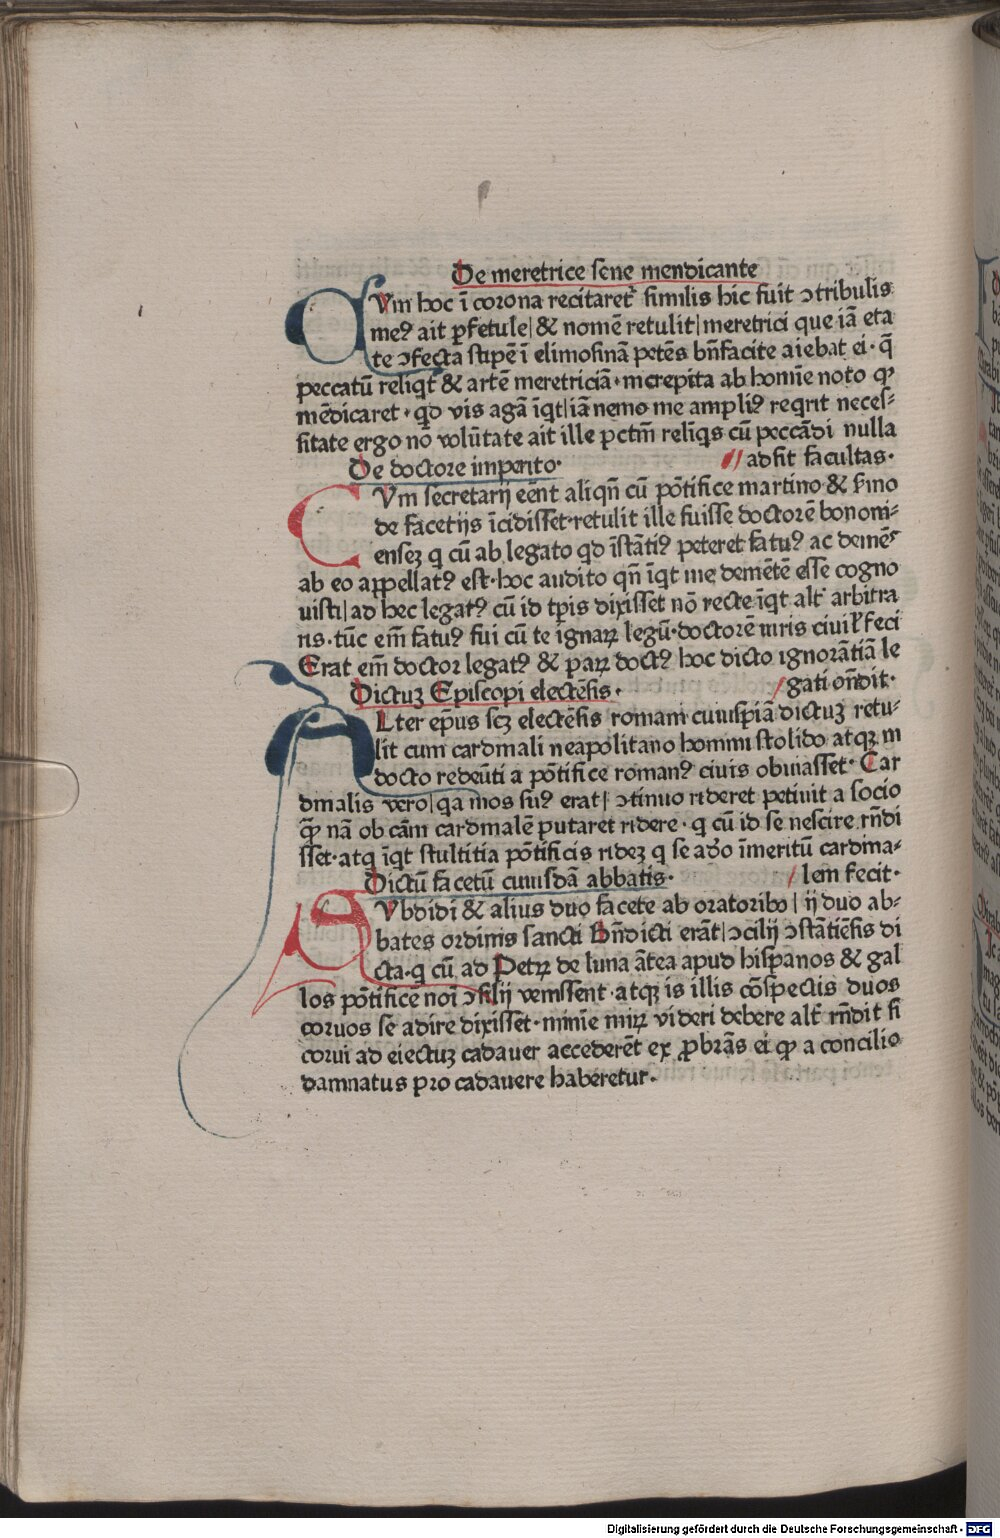 De meretrice sene mendicante
Cum hoc ī corona recitaret᷑ similis hic fuit ↄtribulis
meꝰ ait ꝑfetule| & nomē retulit| meretrici que iā eta
te ↄfecta stipē ī elimosinā petēs bn̄facite aiebat ei· q̄
peccatū reliqt & artē meretriciā· increpita ab homīe noto ꝙ
mēdicaret· qd vis agā īqt| iā nemo me ampliꝰ reqrit neces-
sitate ergo nō volūtate ait ille pctm̄ relīqs cū peccādi nulla
De doctore imperito· // adsit facultas·
CUm secretarij eēnt aliqn̄ cū pōtifice martino & s̄mo
de facetijs īcidisset· retulit ille fuisse doctorē bononi-
enseꝫ q cū ab legato qd īstātiꝰ peteret fatuꝰ ac demēs
ab eo appellatꝰ est· hoc audito qn̄ īqt me demētē esse cogno
uisti| ad hec legatꝰ cū id tꝑis dixisset nō recte īqt alt᷑ arbitra
ris· tūc em̄ fatuꝰ fui cū te ignaꝝ legū· doctorē iuris ciuil̓ feci
Erat em̄ doctor legatꝰ & parꝝ doctꝰ hoc dicto ignorātiā le
Dictuꝫ Episcopi electēsis· / gati on̄dit·
ALter ep̄us scꝫ electēsis romani cuiuspiā dictuꝫ retu-
lit cum cardinali neapolitano homini stolido atqꝫ in
docto redeūti a pōtifice romanꝰ ciuis obuiasset· Car
dinalis vero| qa mos suꝰ erat| ↄtinuo rideret petiuit a socio
ꝙ̄ nā ob cām cardinalē putaret ridere· q cū id se nescire rn̄di
sset· atq īqt stultitia pōtificis rideꝫ q se adeo īmeritū cardina-
Dictū facetū cuiusdā abbatis· / lem fecit·
SUbdidi & alius duo facete ab oratoribꝰ| ij duo ab-
bates ordinis sancti Bn̄dicti erāt| ↄcilij ↄstātiēsis di
cta· q cū ad Petꝝ de luna ātea apud hispanos & gal
los pōtificē noī ↄsilij venissent· atqꝫ is illis cōspectis duos
coruos se adire dixisset· minīe miꝝ videri debere alt᷑ rn̄dit si
corui ad eiectuꝫ cadauer accederēt ex ꝓbrās ei ꝙ a concilio
damnatus pro cadauere haberetur·
Digitalisierung gefördert durch die Deutsche Forschungsgemeinschaft - DFG